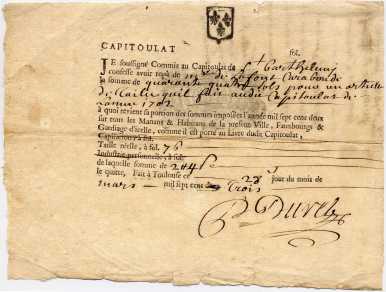 CAPITOULAT
JE soussigné Commis au Capitoulat de St Barthelemy
confesse avoir reçu de
la somme de quarante quatre sols pour un article
de Taille quil fait audit Capitoulat de
lannée 1702
à quoi revient sa portion des sommes imposées l'année mil sept cens deux
sur tous les Manans & Habitans de la presente Ville, Fauxbourgs &
Gardiage d'icelle, comme il est porté au Livre dudit Capitoulat,
Capitation à fol.
Taille réelle, à fol. 76
Industrie personnelle, à fol.
de laquelle somme de
le quitte, Fait à Toulouse ce 23 jour du mois de
mars mil sept cens trois